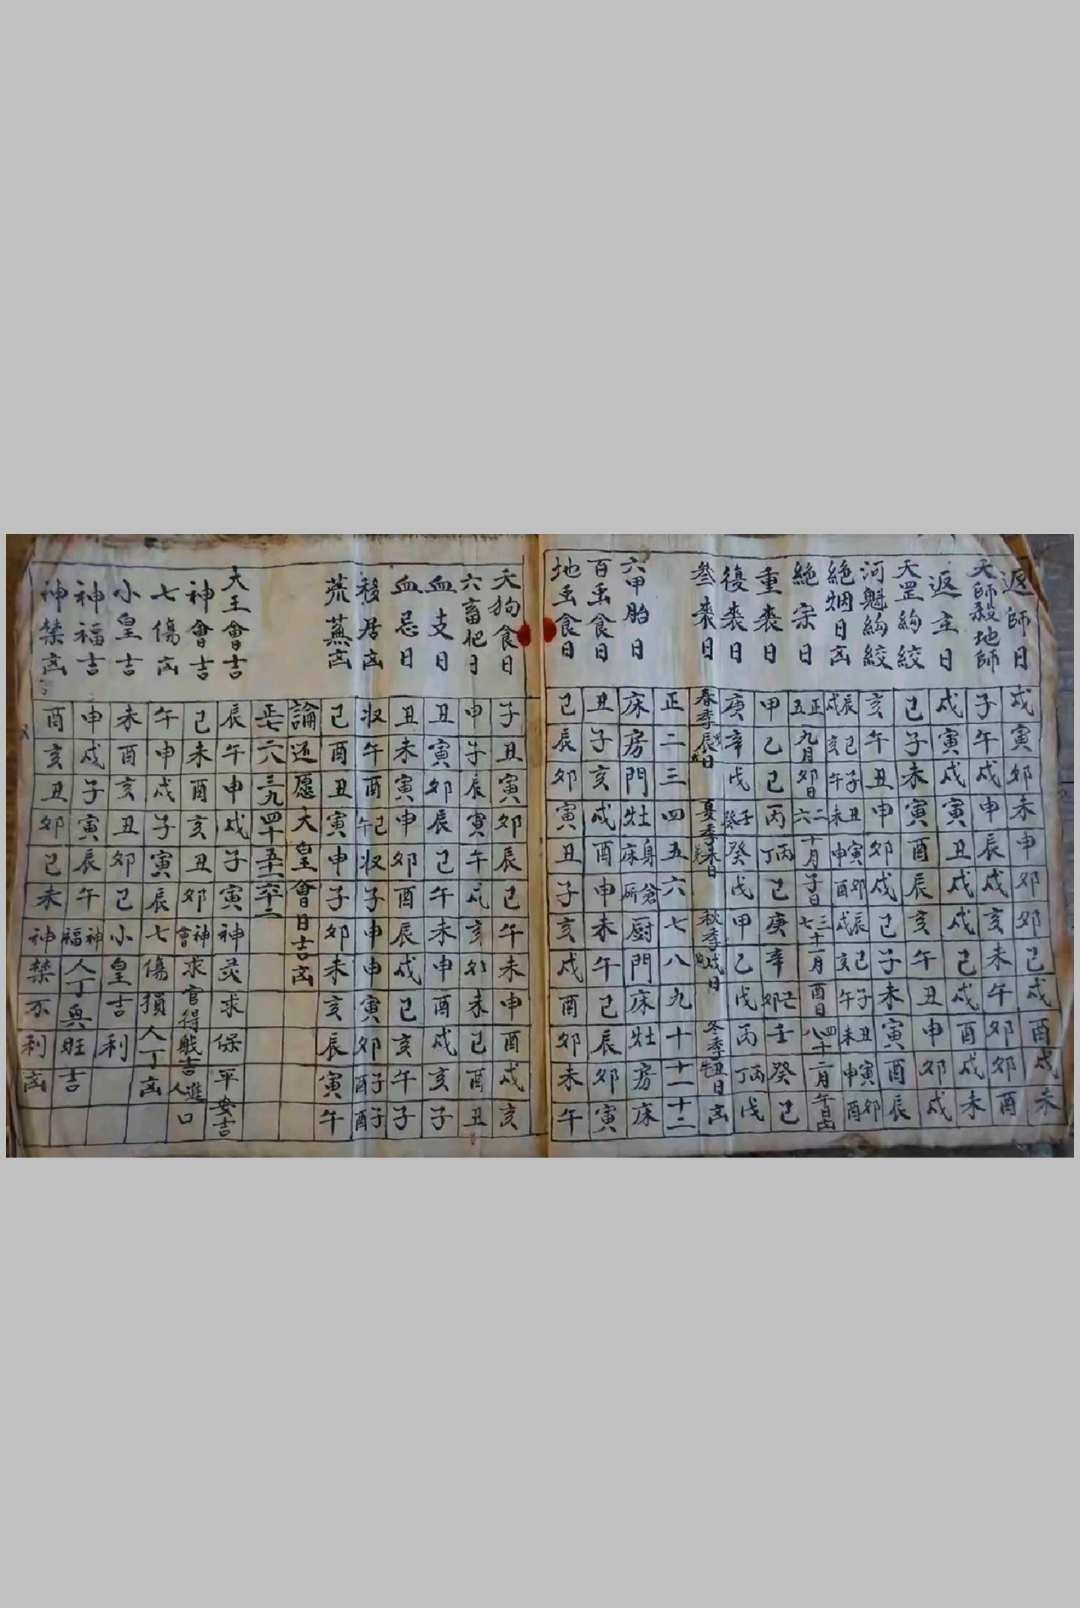 返師日 戍寅卯未申卯卯己戍酉戍未
天師殺地師 子午戍申辰戍亥未午卯卯酉
返主日 戍寅戍寅丑戍戍己戍酉戍未
天罡絇絞 己子未寅酉辰亥午丑申卯戍
河魁絇絞 亥午丑申卯戍己子未寅酉辰
絶烟日凶 辰戍 己亥 子午 丑未 寅申 卯酉 辰戍 己亥 子午 丑未 寅申 卯酉
絶宗日 正五九月卯日 二六十月子日 三七十一月酉日 四八十二月午日凶
重喪日 甲乙己丙丙丁己庚辛壬癸己
復喪日 庚辛戊壬癸癸戊甲乙戊丙丙丁戊
喪日 春季辰日 夏季未日 秋季戍日 冬季丑日凶
正二三四五六七八九十十一十二
六甲胎日 床房門灶身床倉厨門床灶房床
百虫食日 丑子亥戍酉申未午己辰卯寅
地虫食日 己辰卯寅丑子亥戍酉卯未午
天狗食日 子丑寅卯辰己午未申酉戍亥
六畜肥日 申子辰寅午戍亥卯未己酉丑
血支日 丑寅卯辰己午未申酉戍亥子
血忌日 丑未寅申卯酉辰戍己亥午子
移居凶
荒蕪凶 己酉丑寅申子卯未亥辰寅午
論还愿大皇會日吉凶
正七 二八 三九 四十 五十一 六十二
大王會吉 辰午申戍子寅神灵求保平安吉
神會吉 己未酉亥丑卯神會求官得職吉人進口
七傷凶 午申戍子寅辰七傷損人丁凶
小皇吉 未酉亥丑卯己小皇吉利
神福吉 申戍子寅辰午神福人丁興旺吉
神禁凶 酉亥丑卯己未神禁不利凶